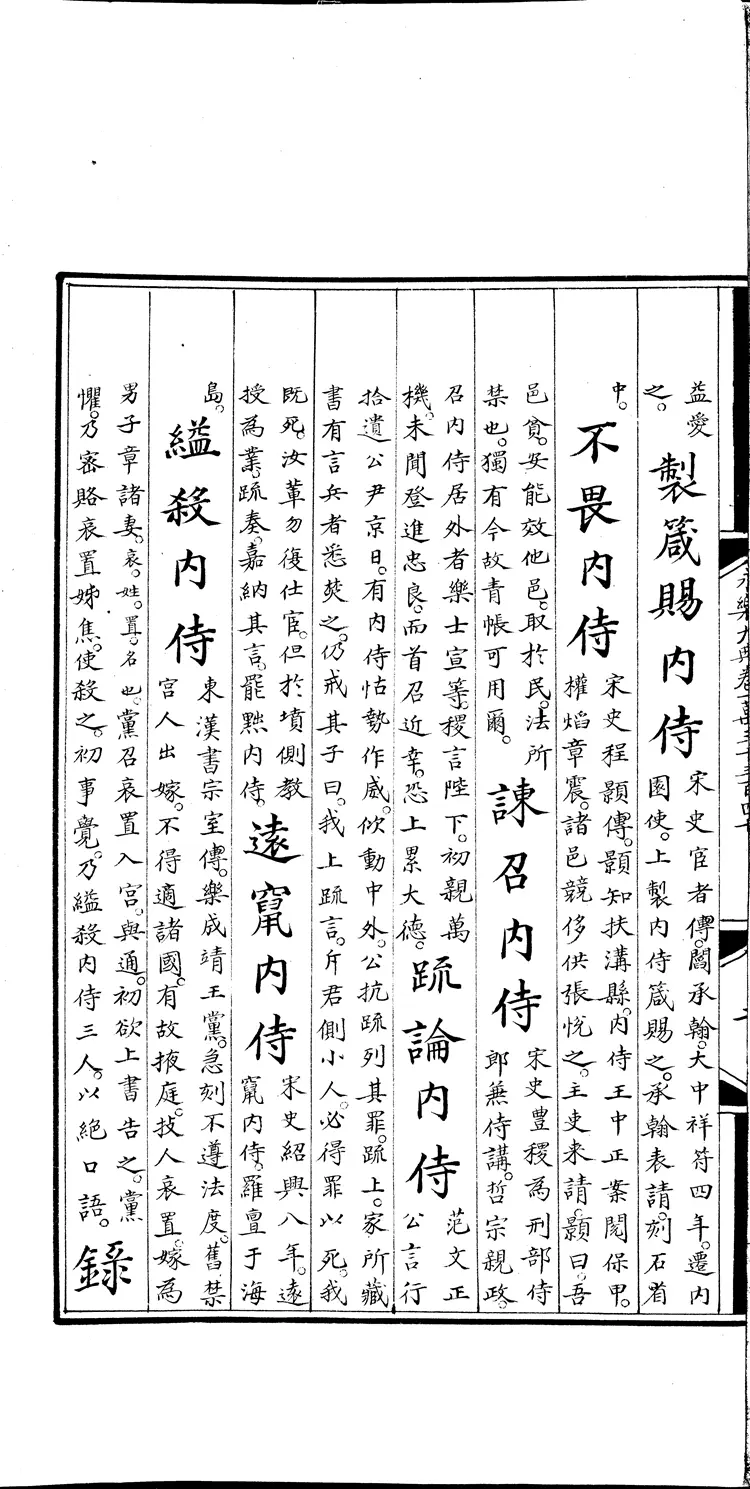 益愛
之。
製箴賜内侍
宋史宦者傳。閻承翰。大中祥符四年。遷内
園使。上製内侍箴賜之。承翰表請。刻石省
中。
不畏内侍
宋史程顥傳。顥知扶溝縣。内侍王中正案閱保甲。
權焰章震。諸邑競侈供張悅之。主吏来請。顥曰。吾
邑貧。安能效他邑。取於民。法所
禁也。獨有令故青帳可用爾。
諫召内侍
宋史豐稷為刑部侍
郎兼侍講。哲宗親政。
召内侍居外者樂士宣等。稷言陛下。初親萬
機。未聞登進忠良。而首召近幸。恐上累大德。
疏論内侍
范文正
公言行
拾遺公尹京日。有内侍怙勢作威。傾動中外。公抗疏列其罪。疏上。家所藏
書有言兵者悉焚之。仍戒其子曰。我上疏言。斥君側小人。必得罪以死。我
既死。汝軰勿復仕宦。但於墳側教
授為業。疏奏。嘉納其言。罷黜内侍。
遠竄内侍
宋史紹興八年。遠
竄内侍。羅亶于海
島。
縊殺内侍
東漢書宗室傳。樂成靖王黨。急刻不遵法度。舊禁
宫人出嫁。不得適諸國。有故掖庭。技人哀置。嫁為
男子章諸妻。哀。姓。置。名也。黨召哀置入宫。與通。初欲上書告之。黨
懼。乃密賂哀置姊焦。使殺之。初事覺。乃縊殺内侍三人。以絶口語。
録